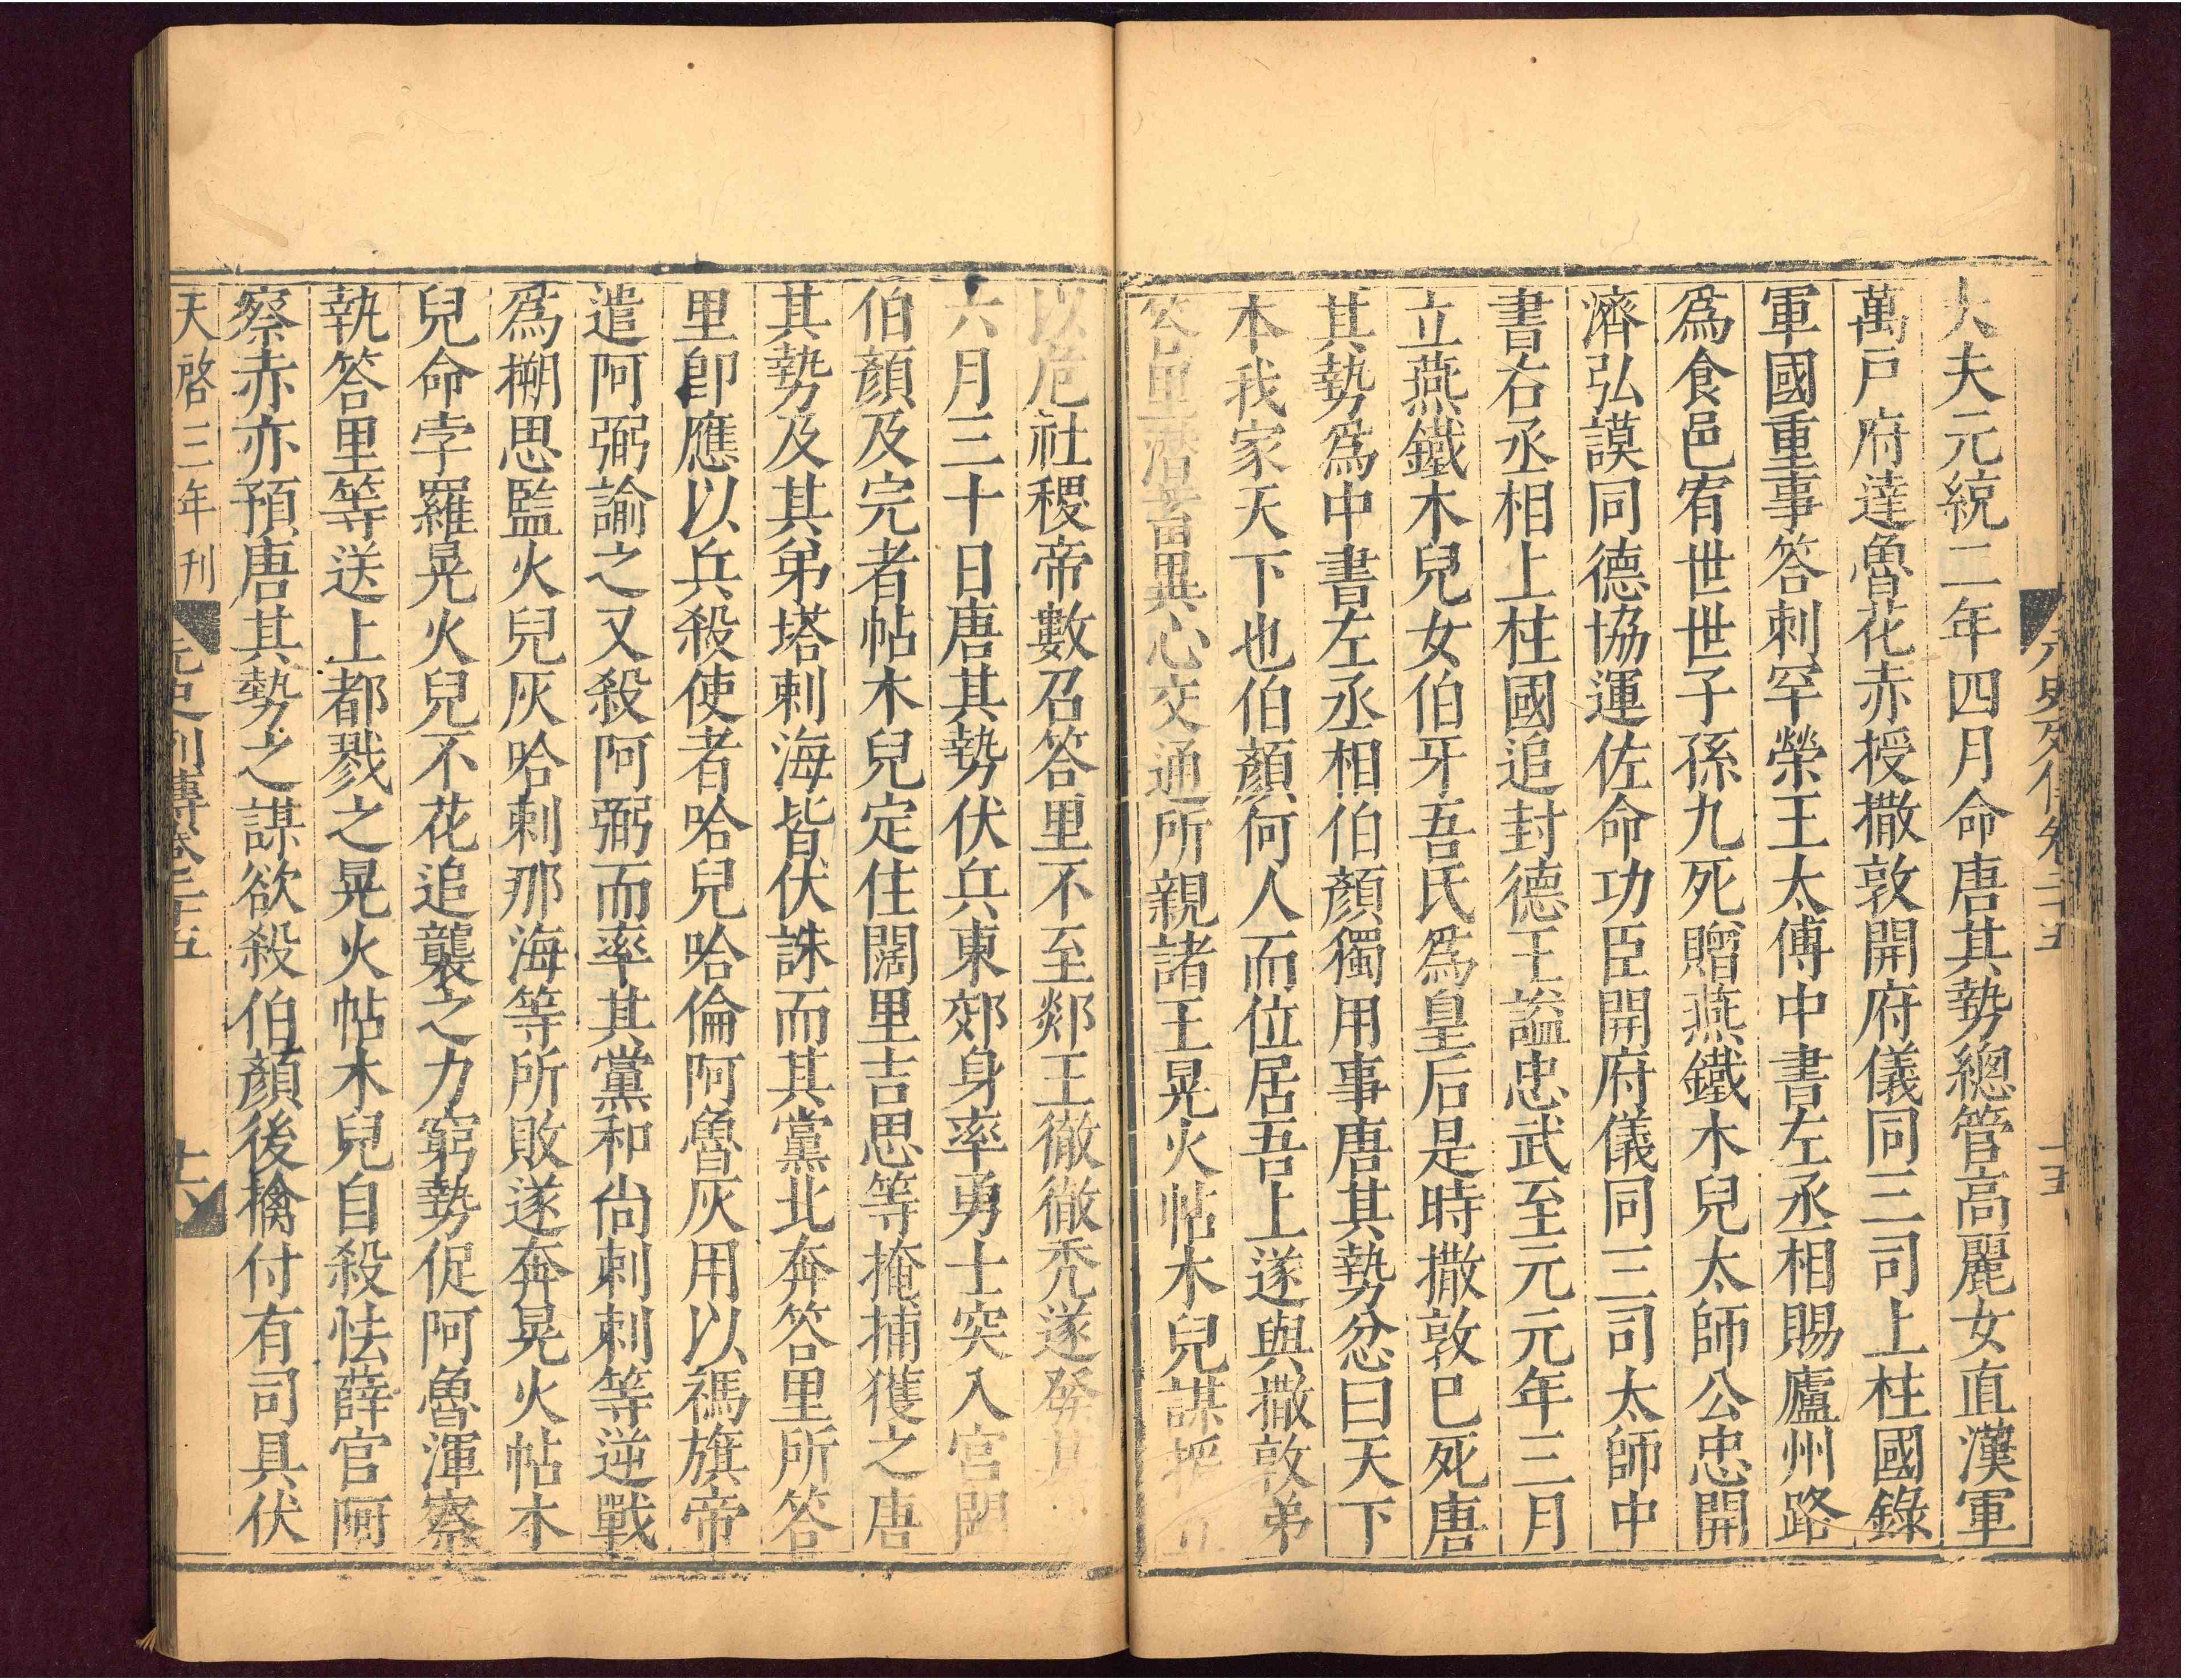 元史列傳卷二十五
十五
大夫元統二年四月命唐其勢總管高麗女直漢軍
萬戶府達魯花赤授撒敦開府儀同三司上柱國錄
軍國重事答剌罕榮王太傅中書左丞相賜廬州路
爲食邑宥世世子孫九死贈燕鐵木兒太師公忠開
濟弘謨同德協運佐命功臣開府儀同三司太師中
書右丞相上柱國追封德王謚忠武至元元年三月
立燕鐵木兒女伯牙吾氏爲皇后是時撒敦巳死唐
其勢爲中書左丞相伯顏獨用事唐其勢忿曰天下
本我家天下也伯顏何人而位居吾上遂與撒敦弟
答里潛蓄異心交通所親諸王晃火帖木兒謀援立
以危社稷帝數召答里不至郯王徹徹禿遂發其
六月三十日唐其勢伏兵東郊身率勇士突入宮闕
伯顏及完者帖木兒定住闊里吉思等掩捕獲之唐
其勢及其弟塔剌海皆伏誅而其黨北奔答里所答
里卽應以兵殺使者哈兒哈倫阿魯灰用以禡旗帝
遣阿弼諭之又殺阿弼而率其黨和尙剌剌等逆戰
爲搠思監火兒灰哈剌那海等所敗遂奔晃火帖木
兒命孛羅晃火兒不花追襲之力窮勢促阿魯渾察
執答里等送上都戮之晃火帖木兒自殺怯薛官阿
察赤亦預唐其勢之謀欲殺伯顏後擒付有司具伏
天啓三年刊
元史列傳卷二十五
十六